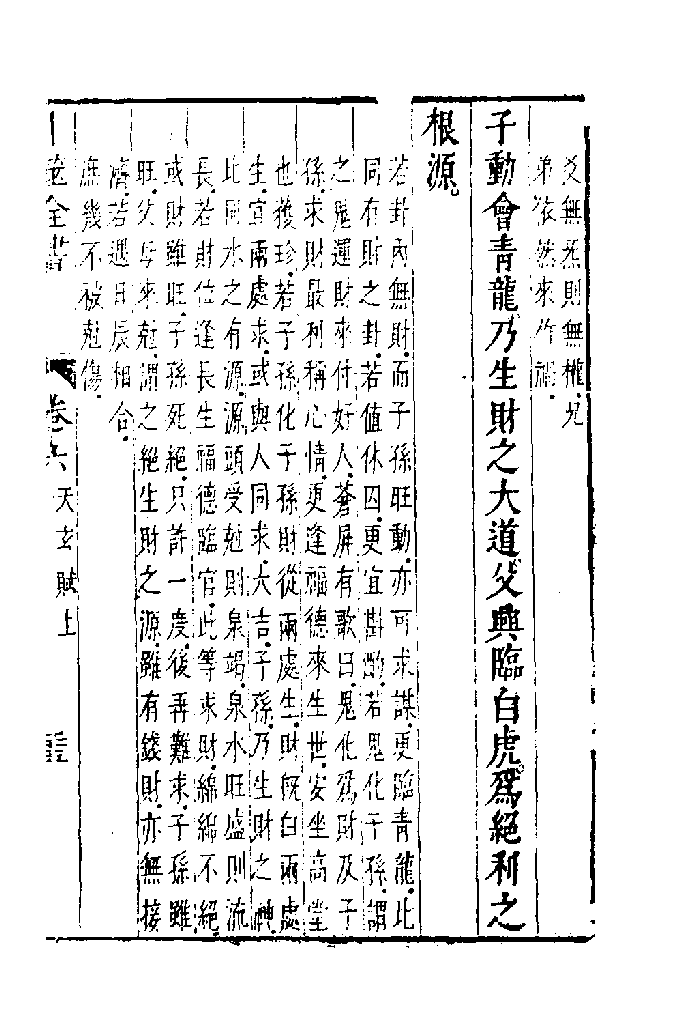 爻無炁則無權兄
弟依然來作禍
子動會青龍乃生財之大道父興臨白虎爲絕利之
根源
若卦內無財而子孫旺動亦可求謀更臨青龍此
同有財之卦若值休囚更宜斟酌若鬼化子孫謂
之鬼運財來付好人蒼屏有歌曰鬼化爲財及子
孫求財最利稱心情更逢福德來生世安坐高堂
也獲珍若子孫化子孫財從兩處生財旣白兩處
生宜兩處求或與人同求大吉子孫乃生財之神
此同水之有源源頭受尅則泉竭泉水旺盛則流
長若財位逢長生福德臨官此等求財綿綿不絕
或財雖旺子孫死絕只許一度後再難求子孫雖
旺父母來尅謂之絕生財之源雖有錢財亦無接
濟若遇日辰相合
庶幾不被尅傷
全書 卷六 天玄賦上